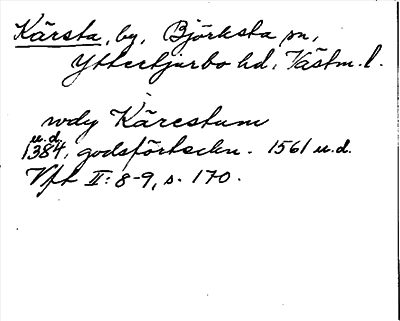 Kärsta, by, Björksta sn,
Yttertjurbo hd, Västm. l.
wdy Kärestum
u.d.
1384, godsförteckn. 1561 u.d.
Vft II: 8-9, s. 170.